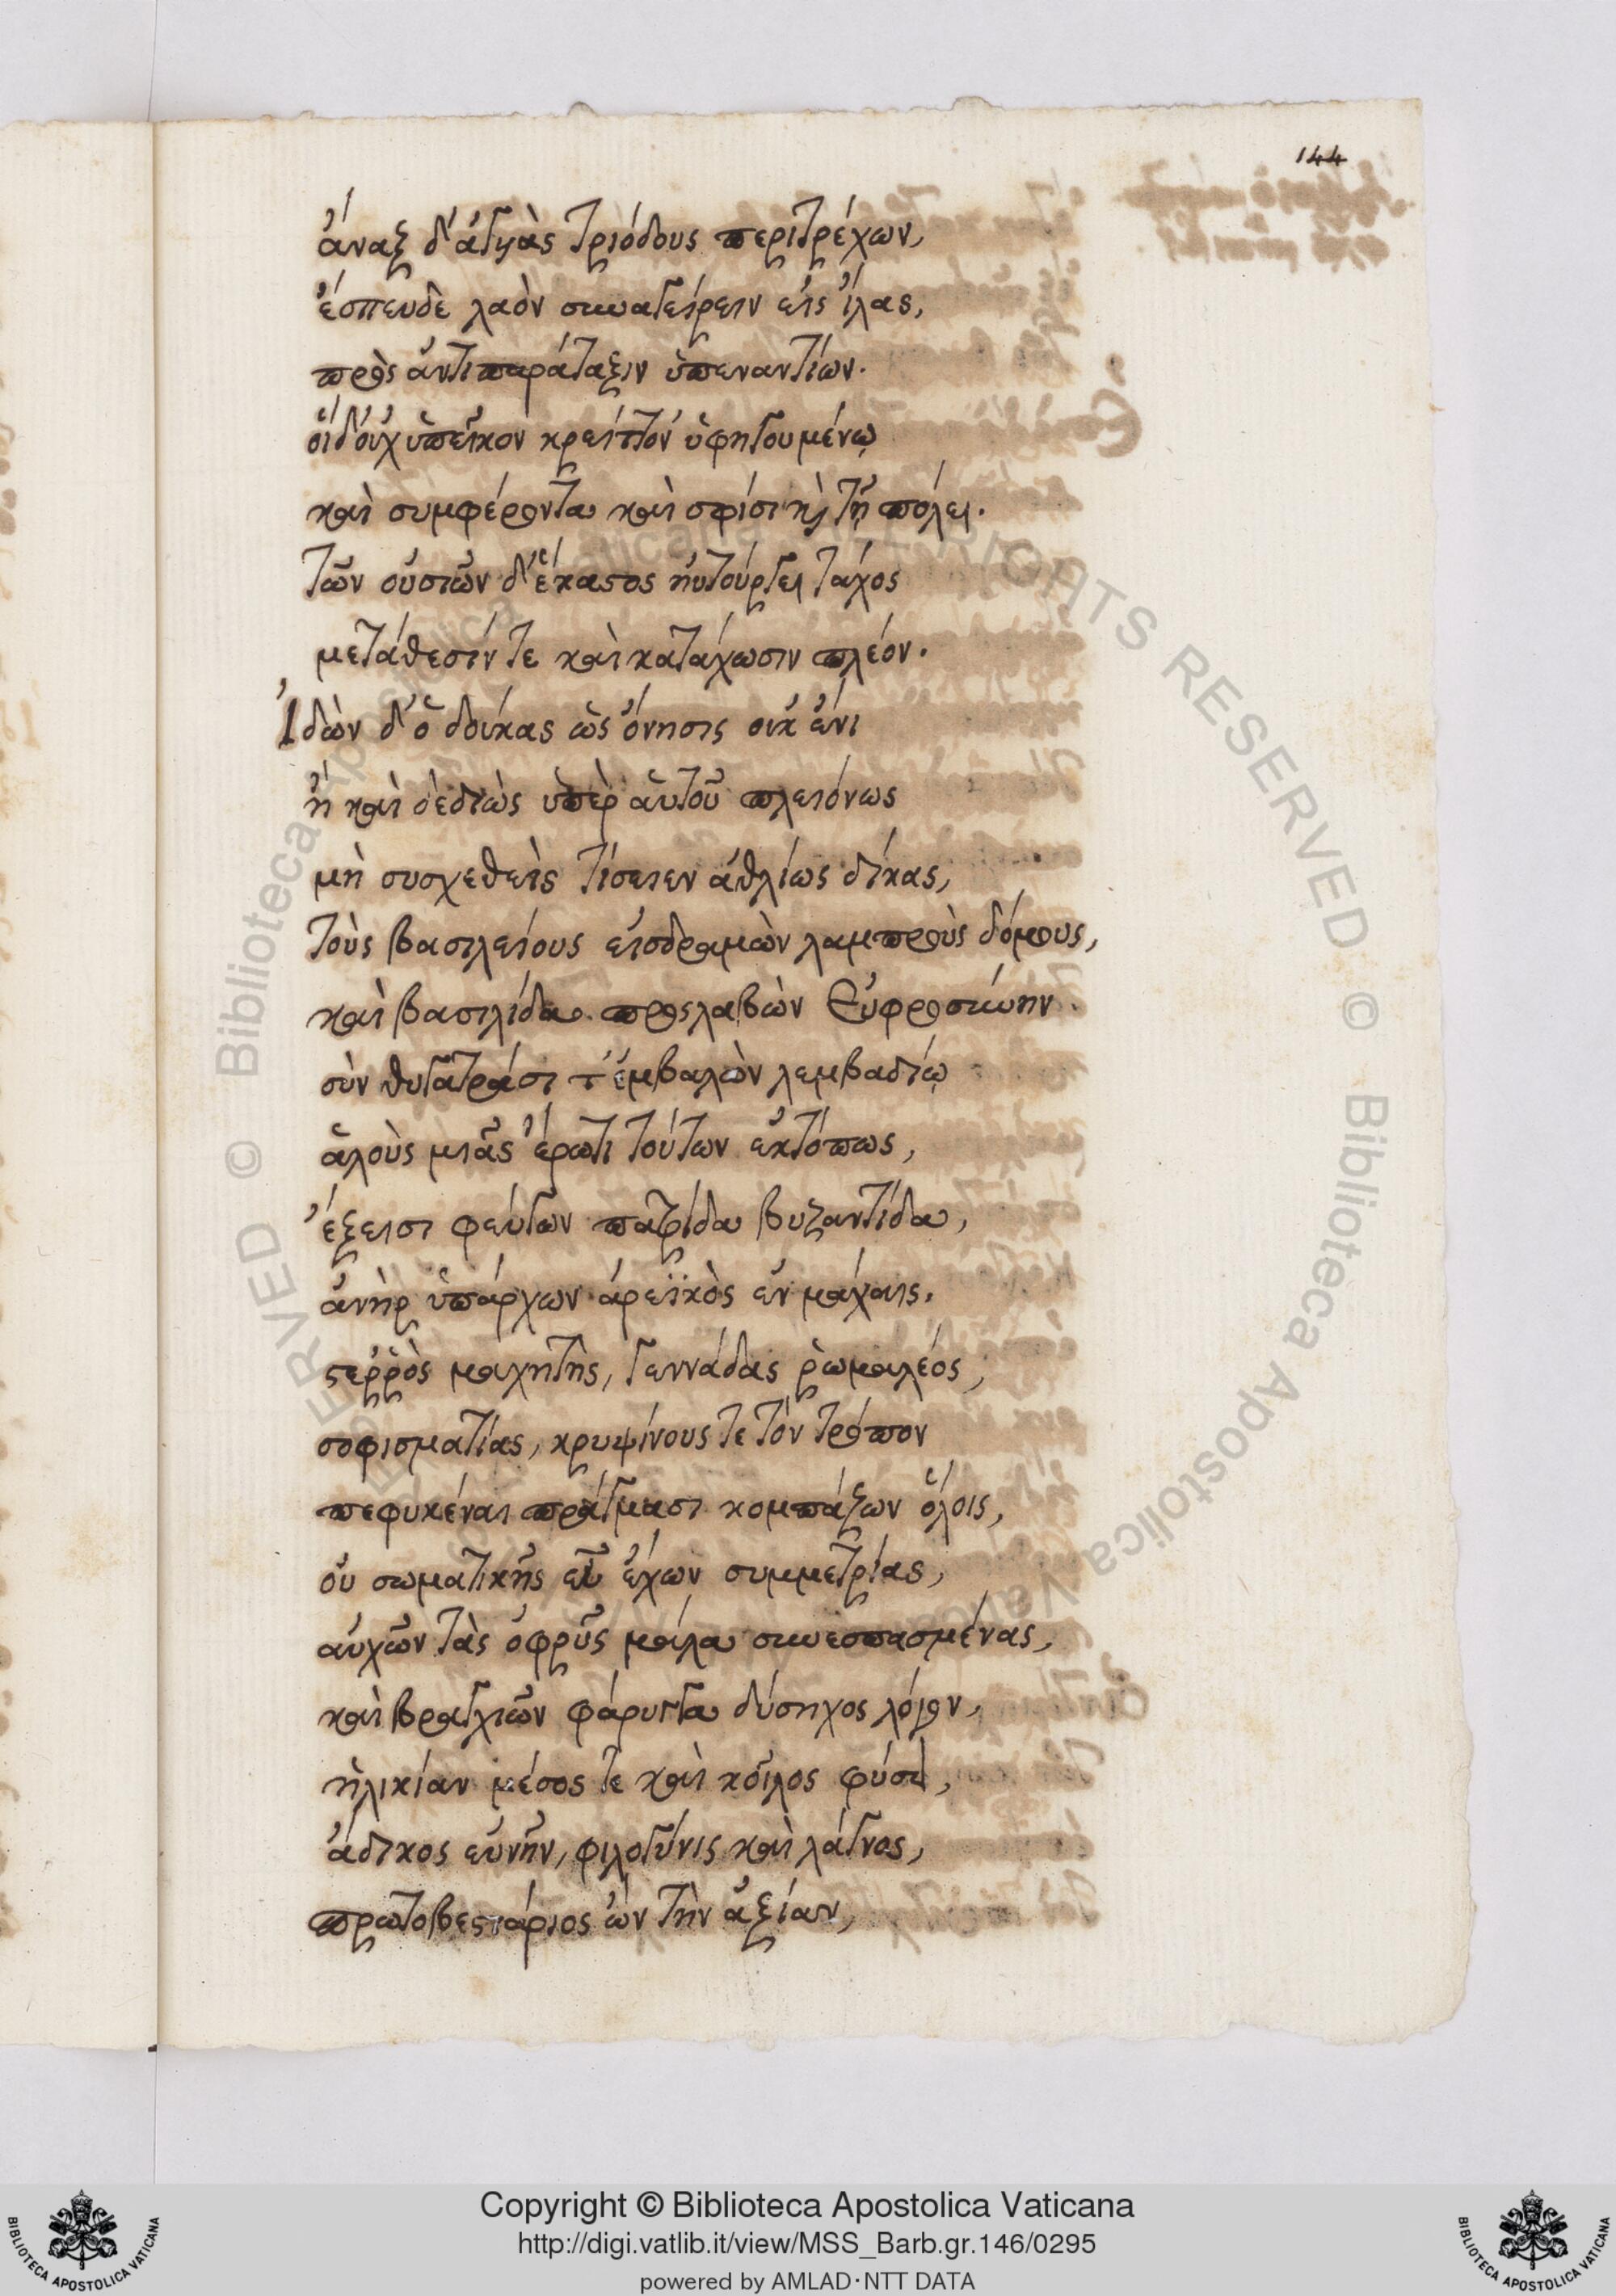 144
ἄναξ δ' ἀγυιὰς τριόδους περιτρέχων,
ἔσπευδε λαὸν συναγείρειν εἰς ἴλας,
πρὸς ἀντιπαράταξιν ὑπεναντίων.
οἱ δ' οὐχ ὑπεῖκον κρείττον' ὑφηγουμένῳ
καὶ συμφέροντα καὶ σφίσι κὶ τῇ πόλει.
τῶν οὐσιῶν δ' ἕκαστος ηὐτούργει τάχος
μετάθεσίν τε καὶ κατάχωσιν πλέον.
Ἰδὼν δ' ὁ δούκας ὡς ὄνησις οὐκ ἔνι
ἢ καὶ δεδιὼς ὑπὲρ αὑτοῦ πλειόνως
μὴ συσχεθεὶς τίσειεν ἀθλίως δίκας,
τοὺς βασιλείους εἰσδραμὼν λαμπροὺς δόμους,
καὶ βασιλίδα προςλαβὼν Εὐφροσύνην
σὺν θυγατράσι τ' ἐμβαλὼν λεμβαδίῳ
ἁλοὺς μιᾶς ἔρωτι τούτων ἐκτόπως,
ἔξεισι φεύγων πατρίδα βυζαντίδα,
ἀνὴρ ὑπάρχων ἀρεϊκὸς ἐν μάχαις.
στεῤῥὸς μαχητὴς, γεννάδας ῥωμαλέος,
σοφισματίας, κρυψίνους τε τὸν τρόπον
πεφυκέναι πράγμασι κομπάζων ὅλοις,
οὐ σωματικῆς εὖ ἔχων συμμετρίας,
αὐχῶν τὰς ὀφρῦς μάλα συνεσπασμένας,
καὶ βραγχιῶν φάρυγγα δύσηχος λόγον,
ἡλικίαν μέσος τε καὶ κοῖλος φύσει,
ἄδικος εὐνὴν, φιλογύνις καὶ λάγνος,
πρωτοβεστιάριος ὢν τὴν ἀξίαν,
Copyright © Biblioteca Apostolica Vaticana
http://digi.vatlib.it/view/MSS_Barb.gr.146/0295
powered by AMLAD·NTT DATA